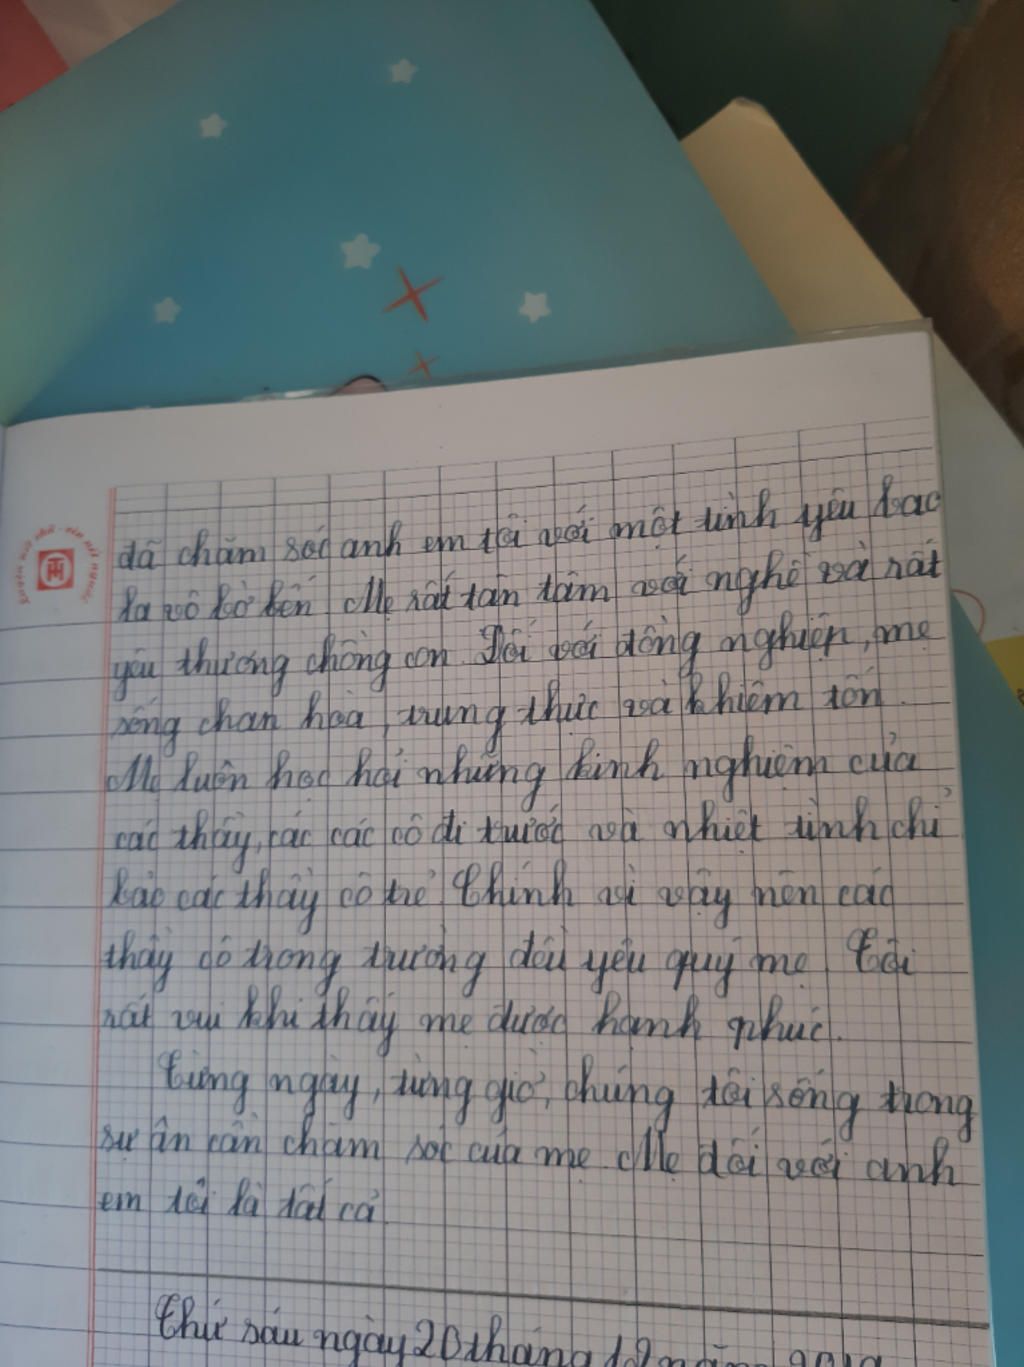 đã chăm sóc anh em tôi với một tình yêu bao
la vô bờ bến. Mẹ rất tận tâm với nghề và rất
yêu thương chồng con. Đối với đồng nghiệp, mẹ
sống chan hòa, trung thực và khiêm tốn.
Mẹ luôn học hỏi những kinh nghiệm của
các thầy, các các cô đi trước và nhiệt tình chỉ
bảo các thầy cô trẻ. Chính vì vậy nên các
thầy cô trong trường đều yêu quý mẹ. Tôi
rất vui khi thấy mẹ được hạnh phúc.
Từng ngày, từng giờ, chúng tôi sống trong
sự ân cần chăm sóc của mẹ. Mẹ đối với anh
em tôi là tất cả
Thứ sáu ngày 20 tháng 12 năm